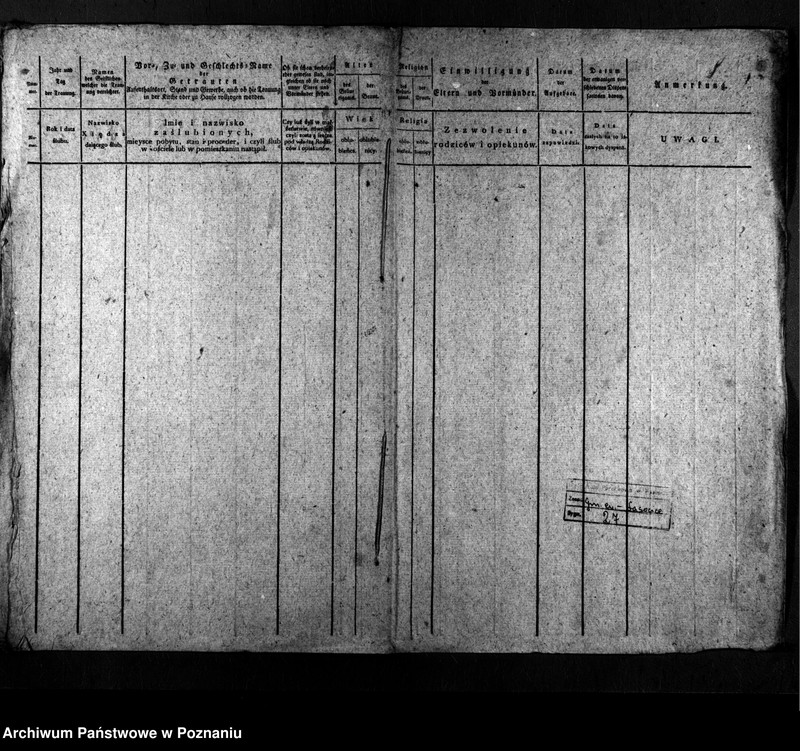 Jahr und
Tag
der Trauung.
Namen
des Geistlichen,
welcher die Trau-
ung verrichtet.
Vor-, Zu- und Geschlechts-Name
der
Getrauten
Aufenthaltsort, Stand und Gewerbe, auch ob die Trauung
in der Kirche oder zu Hause vollzogen worden.
Ob sie schon verheira-
thet gewesen sind, im-
gleichen ob sie noch
unter Eltern und
Vormündern stehen.
Alter
des
Bräu-
tigams.
der
Braut.
Religion
des
der
Braut.
Einwilligung
der
Eltern und Vormünder.
Datum
der
Aufgebote.
Datum
der
Anmerkung.
Rok i data
ślubu.
Nazwisko
Księdza
dającego ślub.
Imie i nazwisko
zaślubionych,
mieysce pobytu, stan i proceder, i czyli ślub
w kościele lub w pomieszkaniu nastąpił.
Czy już byli w mał-
żeństwie,
pod
ców i opiekunów.
Wiek
oblu-
bieńca.
oblubie-
nicy.
Religia
oblu-
bieńca.
oblu-
bienicy.
Zezwolenie
rodziców i opiekunów.
Data
zapowiedzi.
Data
UWAGI.
27
Archiwum Państwowe w Poznaniu